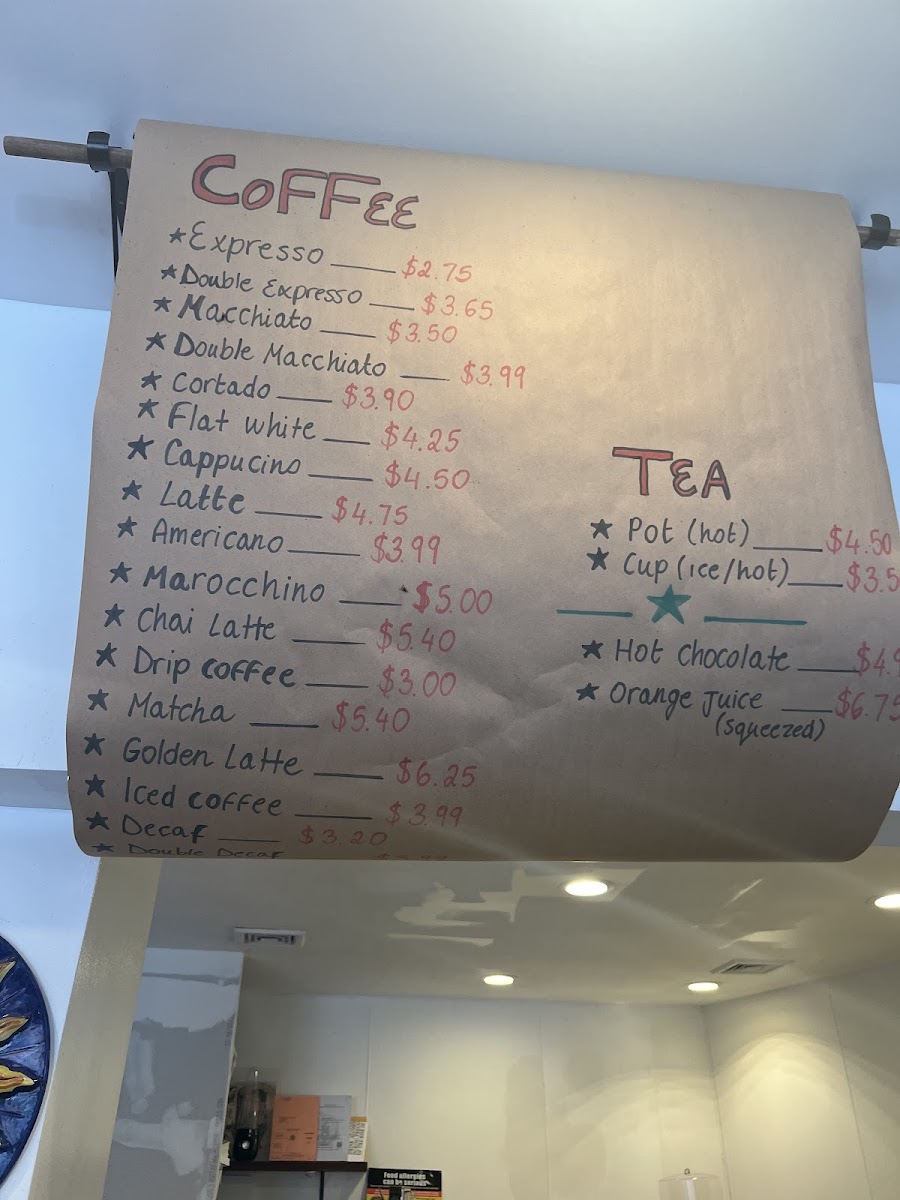 COFFEE
★ Expresso ____ $2.75
★ Double Expresso ____ $3.65
★ Macchiato ____ $3.50
★ Double Macchiato ____ $3.99
★ Cortado ____ $3.90
★ Flat white ____ $4.25
★ Cappucino ____ $4.50
★ Latte ____ $4.75
★ Americano ____ $3.99
★ Marocchino ____ $5.00
★ Chai Latte ____ $5.40
★ Drip coffee ____ $3.00
★ Matcha ____ $5.40
★ Golden Latte ____ $6.25
★ Iced coffee ____ $3.99
★ Decaf ____ $3.20
★ Double Decaf
TEA
★ Pot (hot) ____ $4.50
★ Cup (ice/hot) ____ $3.5
★ Hot Chocolate ____ $4.
★ Orange Juice ____ $6.75
(squeezed)
Food allergies
can be serious